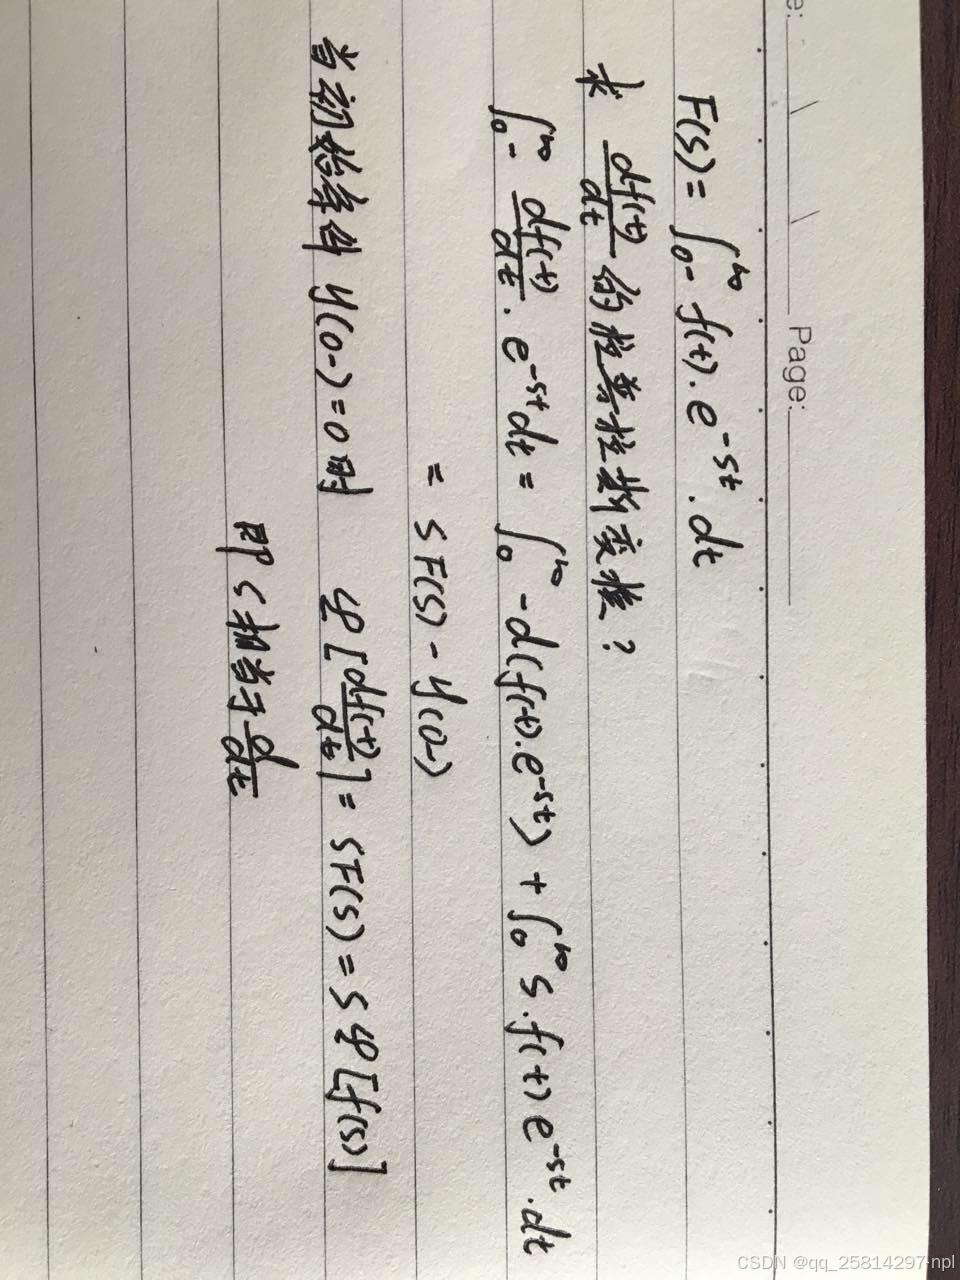 e: Page:
F(s) = ∫₀₋^∞ f(t)·e^{-st}·dt
求 df(t)/dt 的拉普拉斯变换？
∫₀₋^∞ df(t)/dt · e^{-st}dt = ∫₀₋^∞ d(f(t)·e^{-st}) + ∫₀^∞ s·f(t)e^{-st}·dt
= SF(S) - y(0-)
当初始条件 y(0-)=0时 φ[df(t)/dt] = SF(S) = Sφ[f(s)]
即 S 相当于 d/dt
CSDN @qq_25814297-npl